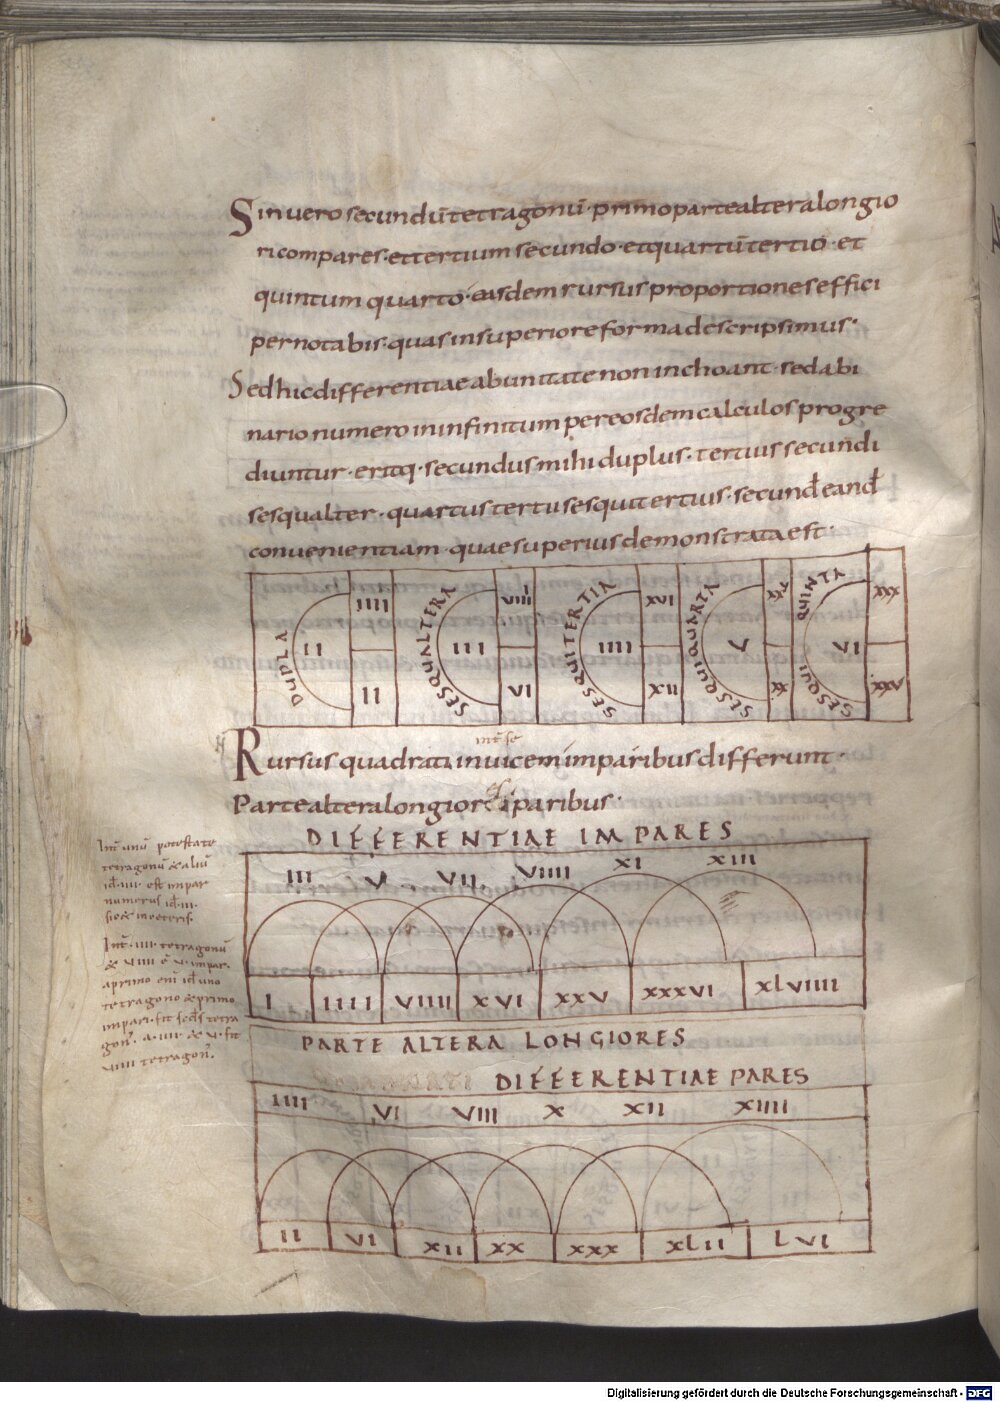 Sin uero secundū tetragonū · primo parte altera longio
ri compares · et tertium secundo · et quartū tertio · et
quintum quarto · easdem rursus proportiones effici
pernotabis · quas in superiore forma descripsimus ·
Sed hic differentiae ab unitate non inchoant · sed a bi
nario numero in infinitum per eosdem calculos progre
diuntur · eritq · secundus mihi duplus · tertius secundi
sesqualter · quartus tertii sesquitertius · secund̄ eand̄
conuenientiam · quae superius demonstrata est ·
DUPLA II IIII II
SESQUALTERA III VIII VI
SESQUITERTIA IIII XVI XII
SESQUIQUARTA V XXV XX
SESQUIQUINTA VI XXX XXXV
int̄ se
Rursus quadrati inuicem imparibus differunt ·
Parte altera longiores paribus ·
DIFFERENTIAE IMPARES
III V VII VIIII XI XIII
I IIII VIIII XVI XXV XXXVI XLVIIII
Int̄ unū potestate
tetragonū & aliū
id · IIII · est impar
numerus id · III ·
sic & in ceteris ·
Int̄ · IIII · tetragonū
& VIIII ē · V · impar ·
a primo eni id uno
tetragono & primo
impari · fit secd̄s tetra
gon · a · IIII · & · V · fit
VIIII tetragon ·
PARTE ALTERA LONGIORES
DIFFERENTIAE PARES
IIII VI VIII X XII XIIII
II VI XII XX XXX XLII LVI
Digitalisierung gefördert durch die Deutsche Forschungsgemeinschaft - DFG